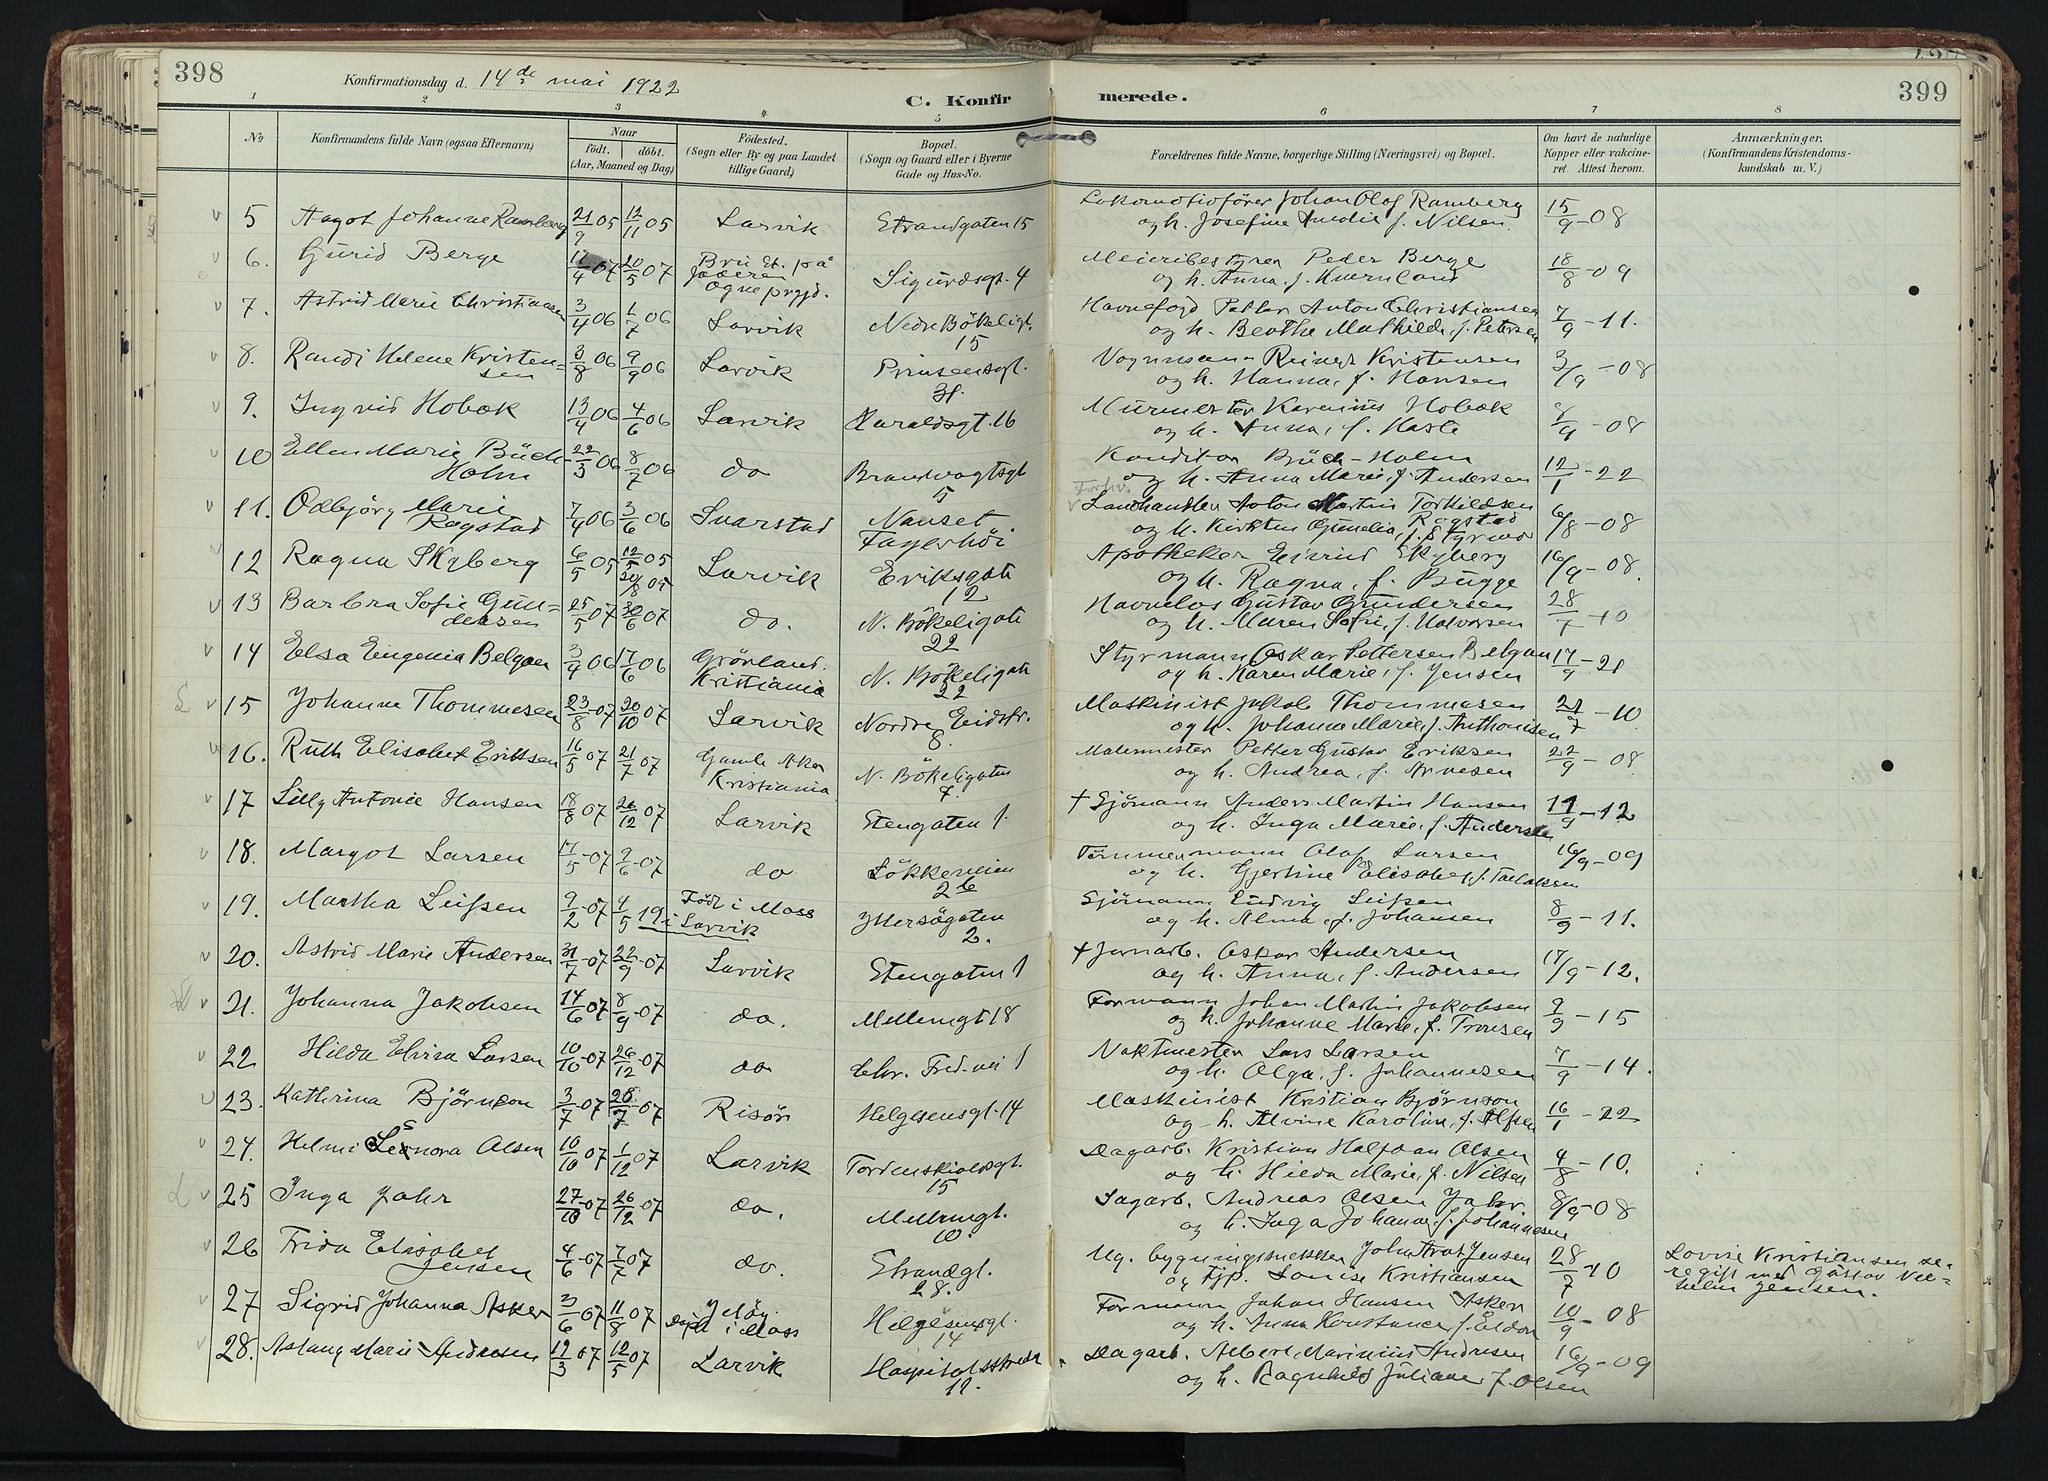 398
Konfirmationsdag d. 14de mai 1922
C. Konfirmerede.
399
1 2 3 4 5 6 7 8
No Konfirmandens fulde Navn (ogsaa Efternavn) Naar født. døbt. (Aar, Maaned og Dag) Fødested. (Sogn eller By og paa Landet tillige Gaard) Bopæl. (Sogn og Gaard eller i Byerne Gade og Hus-No. Forældrenes fulde Navne, borgerlige Stilling (Næringsvei) og Bopæl. Om havt de naturlige Kopper eller vakcineret. Attest herom. Anmærkninger. (Konfirmandens Kristendomskundskab m. V.)
5 Aagot Johanne Ramberg 21/9 05 12/11 05 Larvik Strandgaten 15 Lokomotivfører Johan Olaf Ramberg
og h. Josefine Amalie f. Nilsen. 15/9-08
6. Gurid Berge 17/4 07 20/5 07 Bru St. på Jæderen Ogne prgjd. Sigurdsgt. 4 Meieribestyrer Peder Berge
og h. Anna, f. Kvernland 18/8-09
7. Astrid Marie Christiansen 3/4 06 1/7 06 Larvik Nedre Bökeligt. 15 Havnefogd Petter Anton Christiansen
og h. Benthe Mathilde, f. Petersen 7/9-11.
8. Randi Helene Kristensen 3/8 06 9/9 06 Larvik Prinsensgt. Vognmann Reinert Kristensen
og h. Hanna, f. Hansen 3/9-08
9. Ingrid Hobæk 13/4 06 4/6 06 Larvik Haraldsgt. 16 Murmester Karenius Hobæk
og h. Anna, f. Haste -08
10 Ellen Marie Büch-Holm 22/3 06 8/7 06 do Brandvagtsgt 5 Konditor Büch-Holm
og h. Anna Marie, f. Andersen 12/1-22
11. Odbjørg Marie Rogstad 7/4 06 3/6 06 Svarstad Nanset Fagerhöi Landhandler Anton Martin Torkildsen Rogstad
og h. Kirsten Gunelia, f. Styrmo 6/8-08
12 Ragna Skyberg 6/5 05 12/5 05 20/8 05 Larvik Eriksgate 12 Apotheker Eivind Skyberg
og h. Ragna, f. Bugge 16/9-08.
13 Barbra Sofie Gundersen 25/5 07 30/6 07 do. N. Bökeligate 22 Havnelos Gustav Gundersen
og h. Maren Sofie, f. Halvorsen 28/7-10
14 Elsa Eugenia Belgan 3/4 06 17/6 06 Grønland. Kristiania N. Bökeligate 22 Styrmann Oskar Pettersen Belgau
og h. Karen Marie, f. Jensen 17/9-21
15 Johanne Thommesen 23/8-07 20/10 07 Larvik Nordre Eidstr. 8. Maskinist Jakob Thommesen
og h. Johanne Marie, f. Anthonisen 21/7-10
16. Ruth Elisabet Eriksen 16/5 07 21/7 07 Gamle Aker Kristiania N. Bökeligaten 7. Malermester Petter Gustav Eriksen
og h. Andrea, f. Arnesen 22/9-08
17 Lilly Antonie Hansen 18/8 07 26/12 07 Larvik Stengaten 1 + Sjømann Anders Martin Hansen
og h. Inga Marie, f. Andersen 11/9-12
18. Margot Larsen 17/5-07 9/6-07 do Løkkeveien 2b Tømmermann Olaf Larsen
og h. Gjertine Elisabet, f. Tallaksen 16/9-09
19. Martha Leifsen 9/2-07 4/5 19 Født i Moss i Larvik Yttersøgaten 2. Sjømann Ludvig Leifsen
og h. Alma, f. Johansen 8/9-11.
20. Astrid Marie Andersen 31/7-07 22/9-07 Larvik Stengaten 1 + Jernarb. Oskar Andersen
og h. Anna, f. Andersen 17/9-12.
21. Johanna Jakobsen 14/6 07 8/9-07 do. Mellemgt 18 Formann Johan Martin Jakobsen
og h. Johanne Marie, f. Tronsen 9/9-15
22 Hilda Elvira Larsen 10/10-07 26/12-07 do Chr. Fred. vei 1 Naktmester Lars Larsen
og h. Olga, f. Johannesen 7/9-14.
23. Kathrina Bjørnson 3/7-07 28/7-07 Risør Helgesensgt. 14 Maskinist Kristian Bjørnson
og h. Alvine Karoline, f. Alfsen 16/1-22
24. Helmi Leonora Olsen 10/10 07 1/12 07 Larvik Tordenskioldsgt. 15 Dagarb. Kristian Halfdan Olsen
og h. Hilda Marie, f. Nilsen 4/8-10.
25 Inga Jahr 27/10-07 26/12 07 do. Mellemgt. 10. Sagarb. Andreas Olsen Jahr
og h. Inga Johanne, f. Johannesen 8/9-08
26 Frida Elisabet Jensen 4/6-07 7/7 07 do. Strandgt. 28. Ug. bygningssnekker John Arat Jensen
og Pip. Lovise Kristiansen 28/7-10 Lovise Kristiansen se-
re gift med Gustav Vil-
helm Jensen.
27 Sigrid Johanna Asker 3/6-07 11/8 07 Jeløy Døpt i Moss Helgesensgt. 14 Formann Johan Hansen Asker
og h. Anna Konstance, f. Eldon 10/9-08
28. Aslaug Marie Andresen 19/3-07 12/5 07 Larvik Hospitalsstræde 12. Dagarb. Albert Marinius Andresen
og h. Ragnhild Juliane, f. Olsen 16/9-09